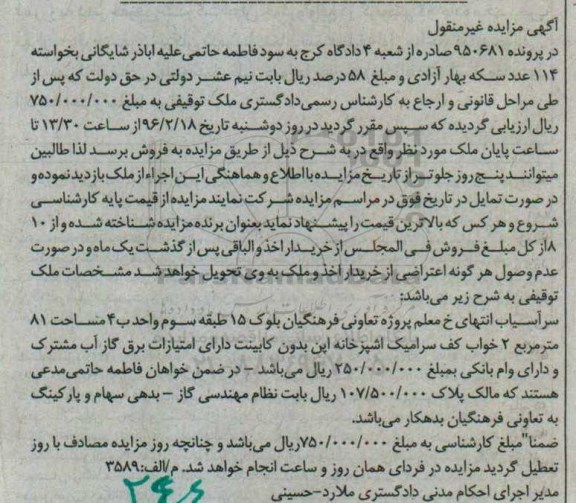 آگهی مزایده غیرمنقول
در پرونده ۹۵۰۶۸۱ صادره از شعبه ۴ دادگاه کرج به سود فاطمه حاتمی علیه اباذر شایگانی بخواسته
۱۱۴ عدد سکه بهار آزادی و مبلغ ۵۸ درصد ریال بابت نیم عشر دولتی در حق دولت که پس از
طی مراحل قانونی و ارجاع به کارشناس رسمی دادگستری ملک توقیفی به مبلغ ۷۵۰/۰۰۰/۰۰۰
ریال ارزیابی گردیده که سپس مقرر گردید در روز دوشنبه تاریخ ۹۶/۲/۱۸ از ساعت ۱۳/۳۰ تا
ساعت پایان ملک مورد نظر واقع در به شرح ذیل از طریق مزایده به فروش برسد لذا طالبین
میتوانند پنج روز جلوتر از تاریخ مزایده با اطلاع و هماهنگی این اجراء از ملک بازدید نموده و
در صورت تمایل در تاریخ فوق در مراسم مزایده شرکت نمایند مزایده از قیمت پایه کارشناسی
شروع و هر کس که بالاترین قیمت را پیشنهاد نماید بعنوان برنده مزایده شناخته شده و از ۱۰
۸از کل مبلغ فروش فی المجلس از خریدار اخذ و الباقی پس از گذشت یک ماه و در صورت
عدم وصول هر گونه اعتراضی از خریدار اخذ و ملک به وی تحویل خواهد شد مشخصات ملک
توقیفی به شرح زیر می‌باشد:
سرآسیاب انتهای خ معلم پروژه تعاونی فرهنگیان بلوک ۱۵ طبقه سوم واحد ب۴ مساحت ۸۱
مترمربع ۲ خواب کف سرامیک آشپزخانه اپن بدون کابینت دارای امتیازات برق گاز آب مشترک
و دارای وام بانکی بمبلغ ۲۵۰/۰۰۰/۰۰۰ ریال می‌باشد – در ضمن خواهان فاطمه حاتمی مدعی
هستند که مالک پلاک ۱۰۷/۵۰۰/۰۰۰ ریال بابت نظام مهندسی گاز – بدهی سهام و پارکینگ
به تعاونی فرهنگیان بدهکار می‌باشد.
ضمنا" مبلغ کارشناسی به مبلغ ۷۵۰/۰۰۰/۰۰۰ ریال می‌باشد و چنانچه روز مزایده مصادف با روز
تعطیل گردید مزایده در فردای همان روز و ساعت انجام خواهد شد. م/الف:۳۵۸۹
مدیر اجرای احکام مدنی دادگستری ملارد–حسینی